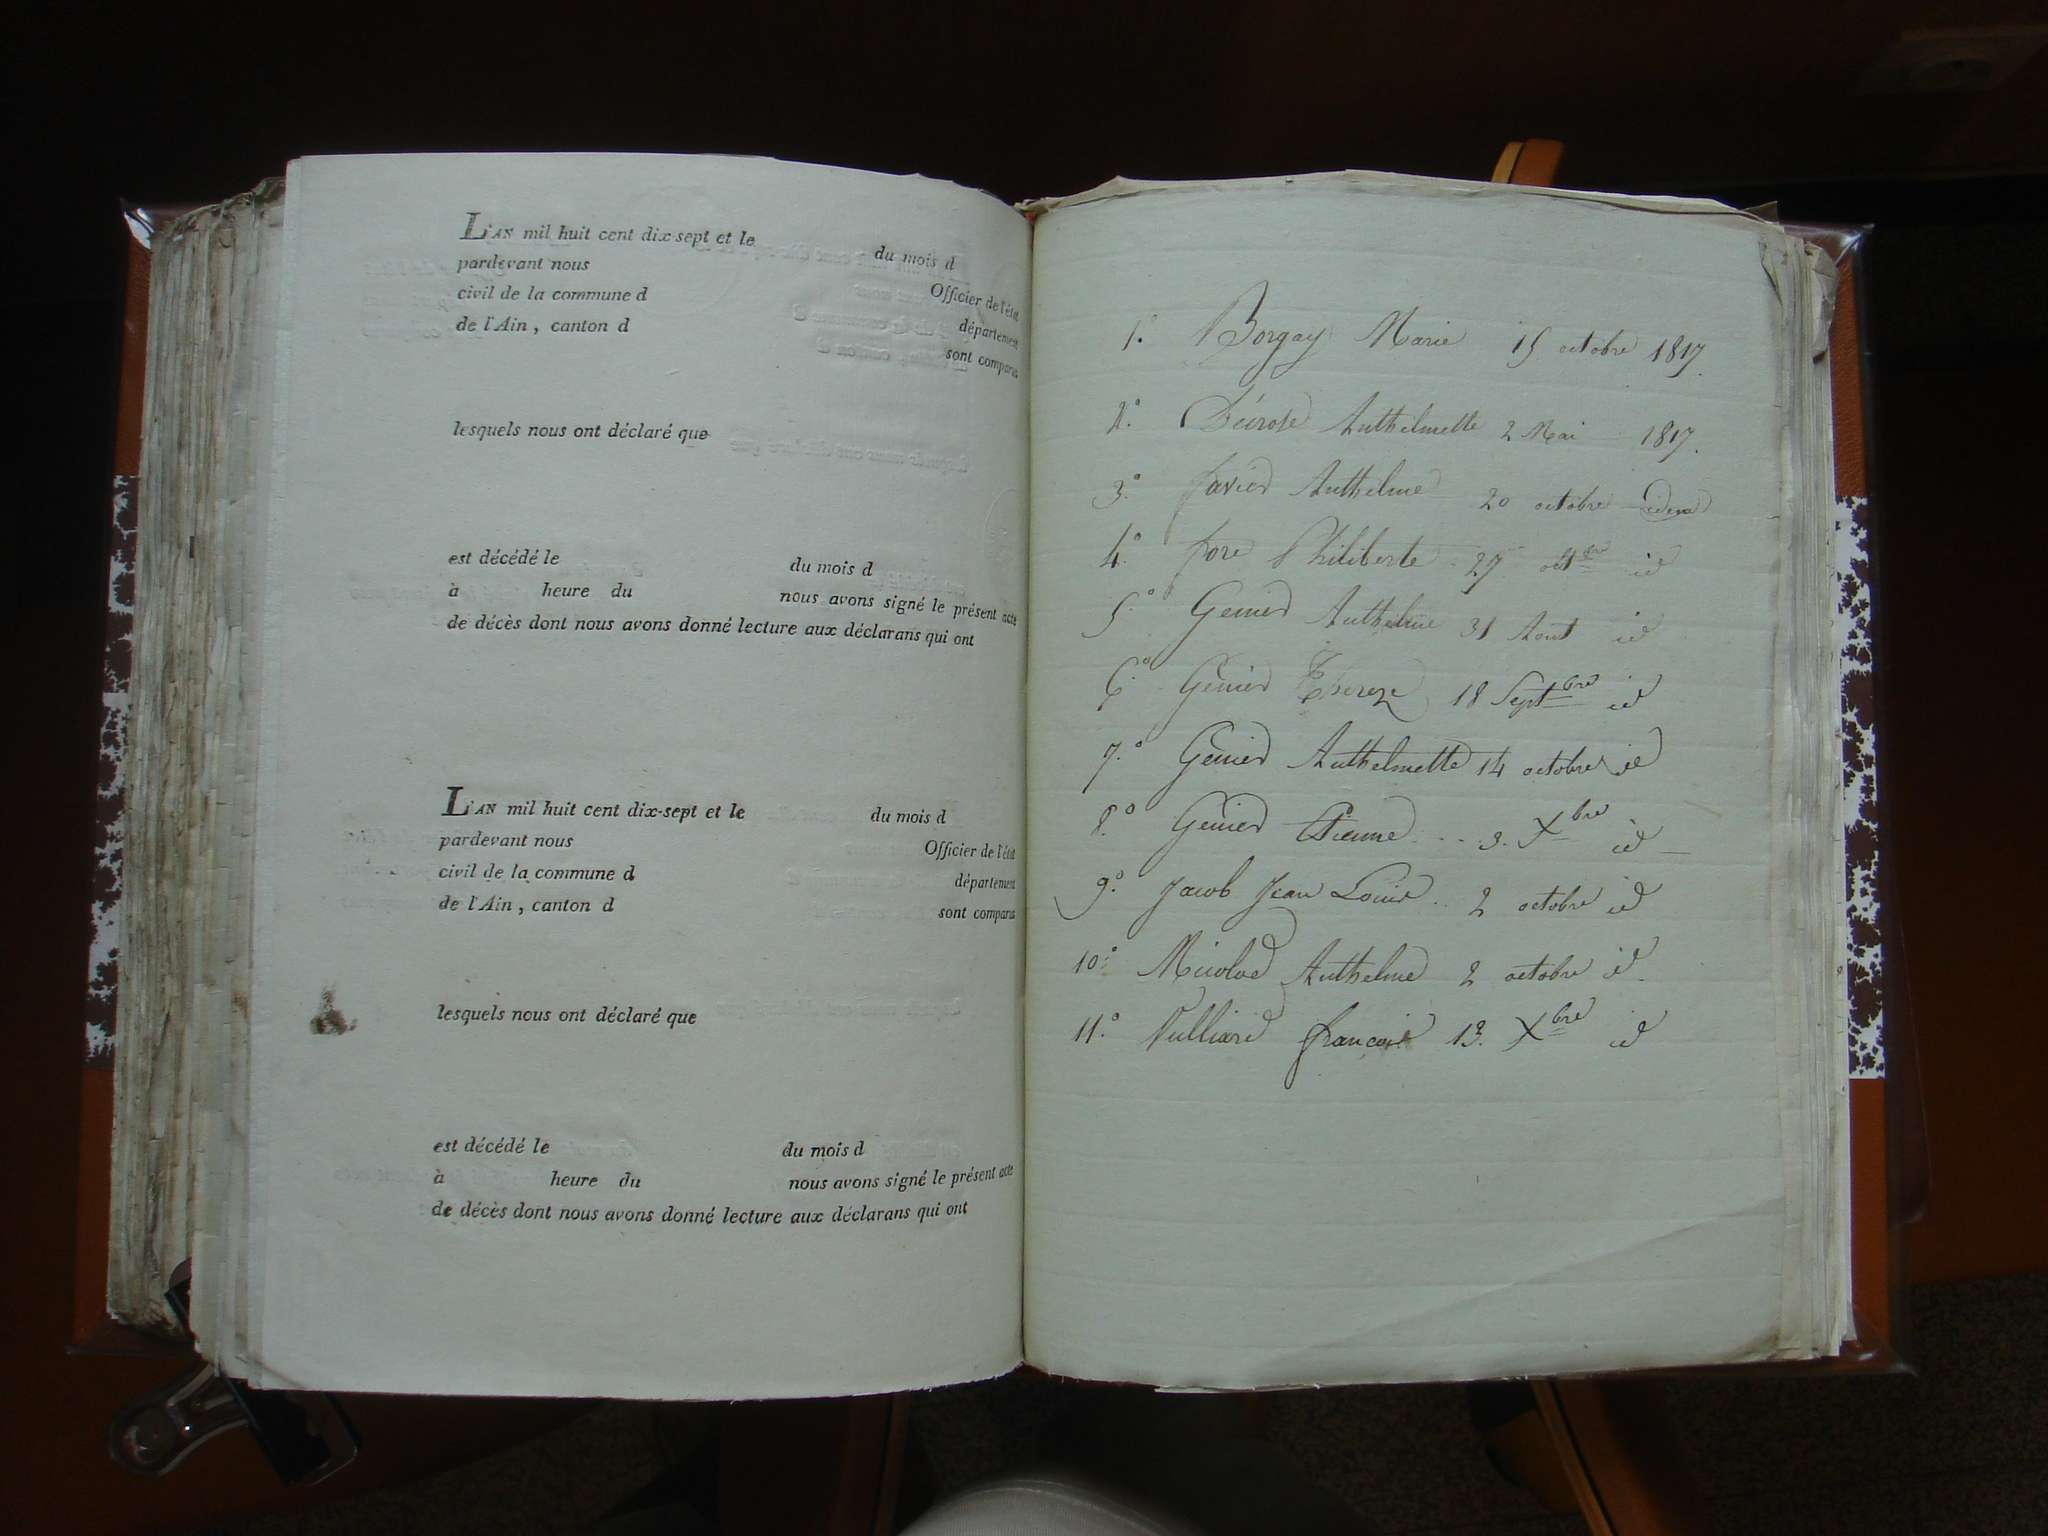 L'AN mil huit cent dix-sept et le du mois d
pardevant nous Officier de l'état
civil de la commune d département
de l'Ain, canton d sont comparus
lesquels nous ont déclaré que
est décédé le du mois d
à heure du nous avons signé le présent acte
de décès dont nous avons donné lecture aux déclarans qui ont
L'AN mil huit cent dix-sept et le du mois d
pardevant nous Officier de l'état
civil de la commune d département
de l'Ain, canton d sont comparus
lesquels nous ont déclaré que
est décédé le du mois d
à heure du nous avons signé le présent acte
de décès dont nous avons donné lecture aux déclarans qui ont
1.° Borgay Marie 15 octobre 1817.
2.° Anthelmette 2 Mai 1817.
3.° favier Anthelme 20 octobre idem
4.° fore Philiberte 27 oct.bre id
5.° Genier Anthelme 31 Aout id
6.° Genier Thereze 18 Septbre id
7.° Genier Anthelmette 14 octobre id
8.° Genier Etienne 3. Xbre id
9.° Jacob Jean Louis 2 octobre id
10.° Anthelme 2 octobre id.
11.° Vulliard francois 13. Xbre id